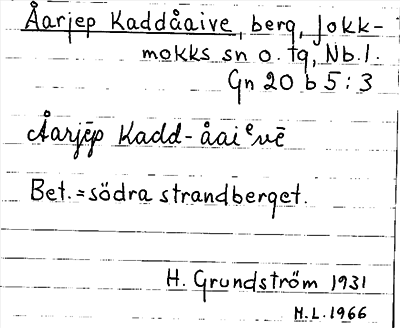 Åarjep Kaddåaive, berg, Jokk-
mokks sn o. tg, Nb. l.
Gn 20 b 5:3
Åarjēp Kadd-åaiᵉvē
Bet. = södra strandberget.
H. Grundström 1931
H.L. 1966